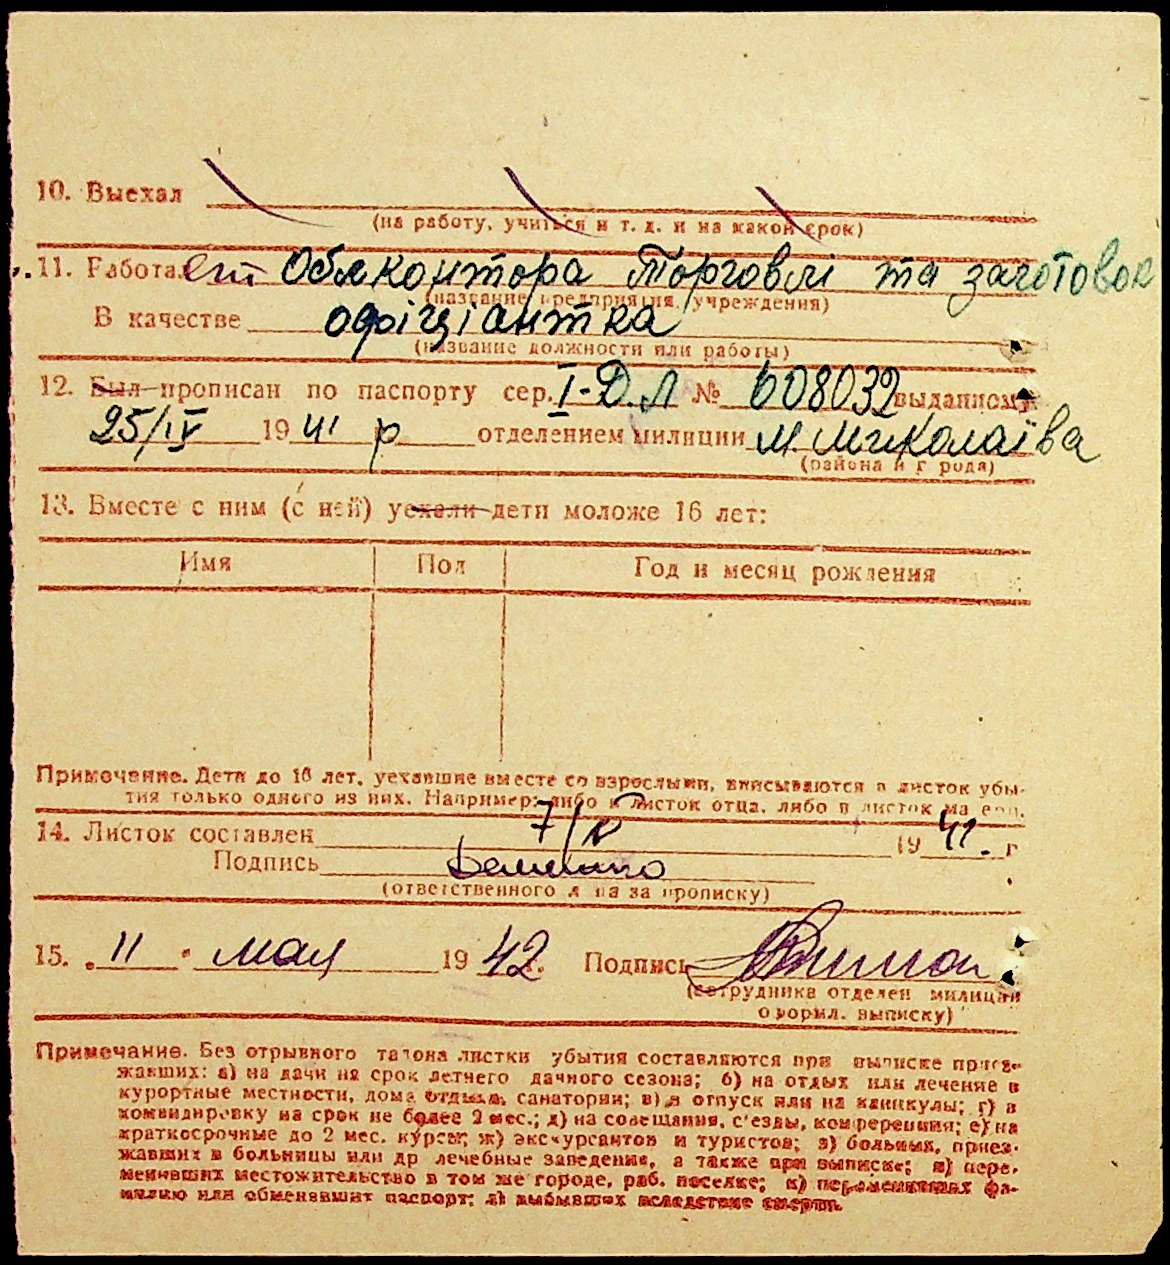 10. Выехал
(на работу, учиться и т. д. и на какой срок)
11. Работает Облконтора Торговлі та заготовок
(название предприятия, учреждения)
В качестве офіціантка
(название должности или работы)
12. Был прописан по паспорту сер. I-Д.Л № 608032 выданному
25/IV 1941 р отделением милиции М. Миколаїва
(района и города)
13. Вместе с ним (с ней) уехали дети моложе 16 лет:
Имя Пол Год и месяц рождения
Примечание. Дети до 16 лет, уехавшие вместе со взрослыми, вписываются в листок убы-
тия только одного из них. Например: либо в листок отца, либо в листок матери.
14. Листок составлен 7/V 1942. г
Подпись
(ответственного лица за прописку)
15. „11" мая 1942 г. Подпись
(сотрудника отделен. милиции
оформл. выписку)
Примечание. Без отрывного талона листки убытия составляются при выписке приез-
жавших: а) на дачи на срок летнего дачного сезона; б) на отдых или лечение в
курортные местности, дома отдыха, санатории; в) в отпуск или на каникулы; г) в
командировку на срок не более 2 мес.; д) на совещания, с'езды, конференции; е) на
краткосрочные до 2 мес. курсы; ж) экскурсантов и туристов; з) больных, приез-
жавших в больницы или др лечебные заведения, а также при выписке; и) пере-
менивших местожительство в том же городе, раб. поселке; к) переменивших фа-
милию или обменявших паспорт; л) выбывших вследствие смерти.